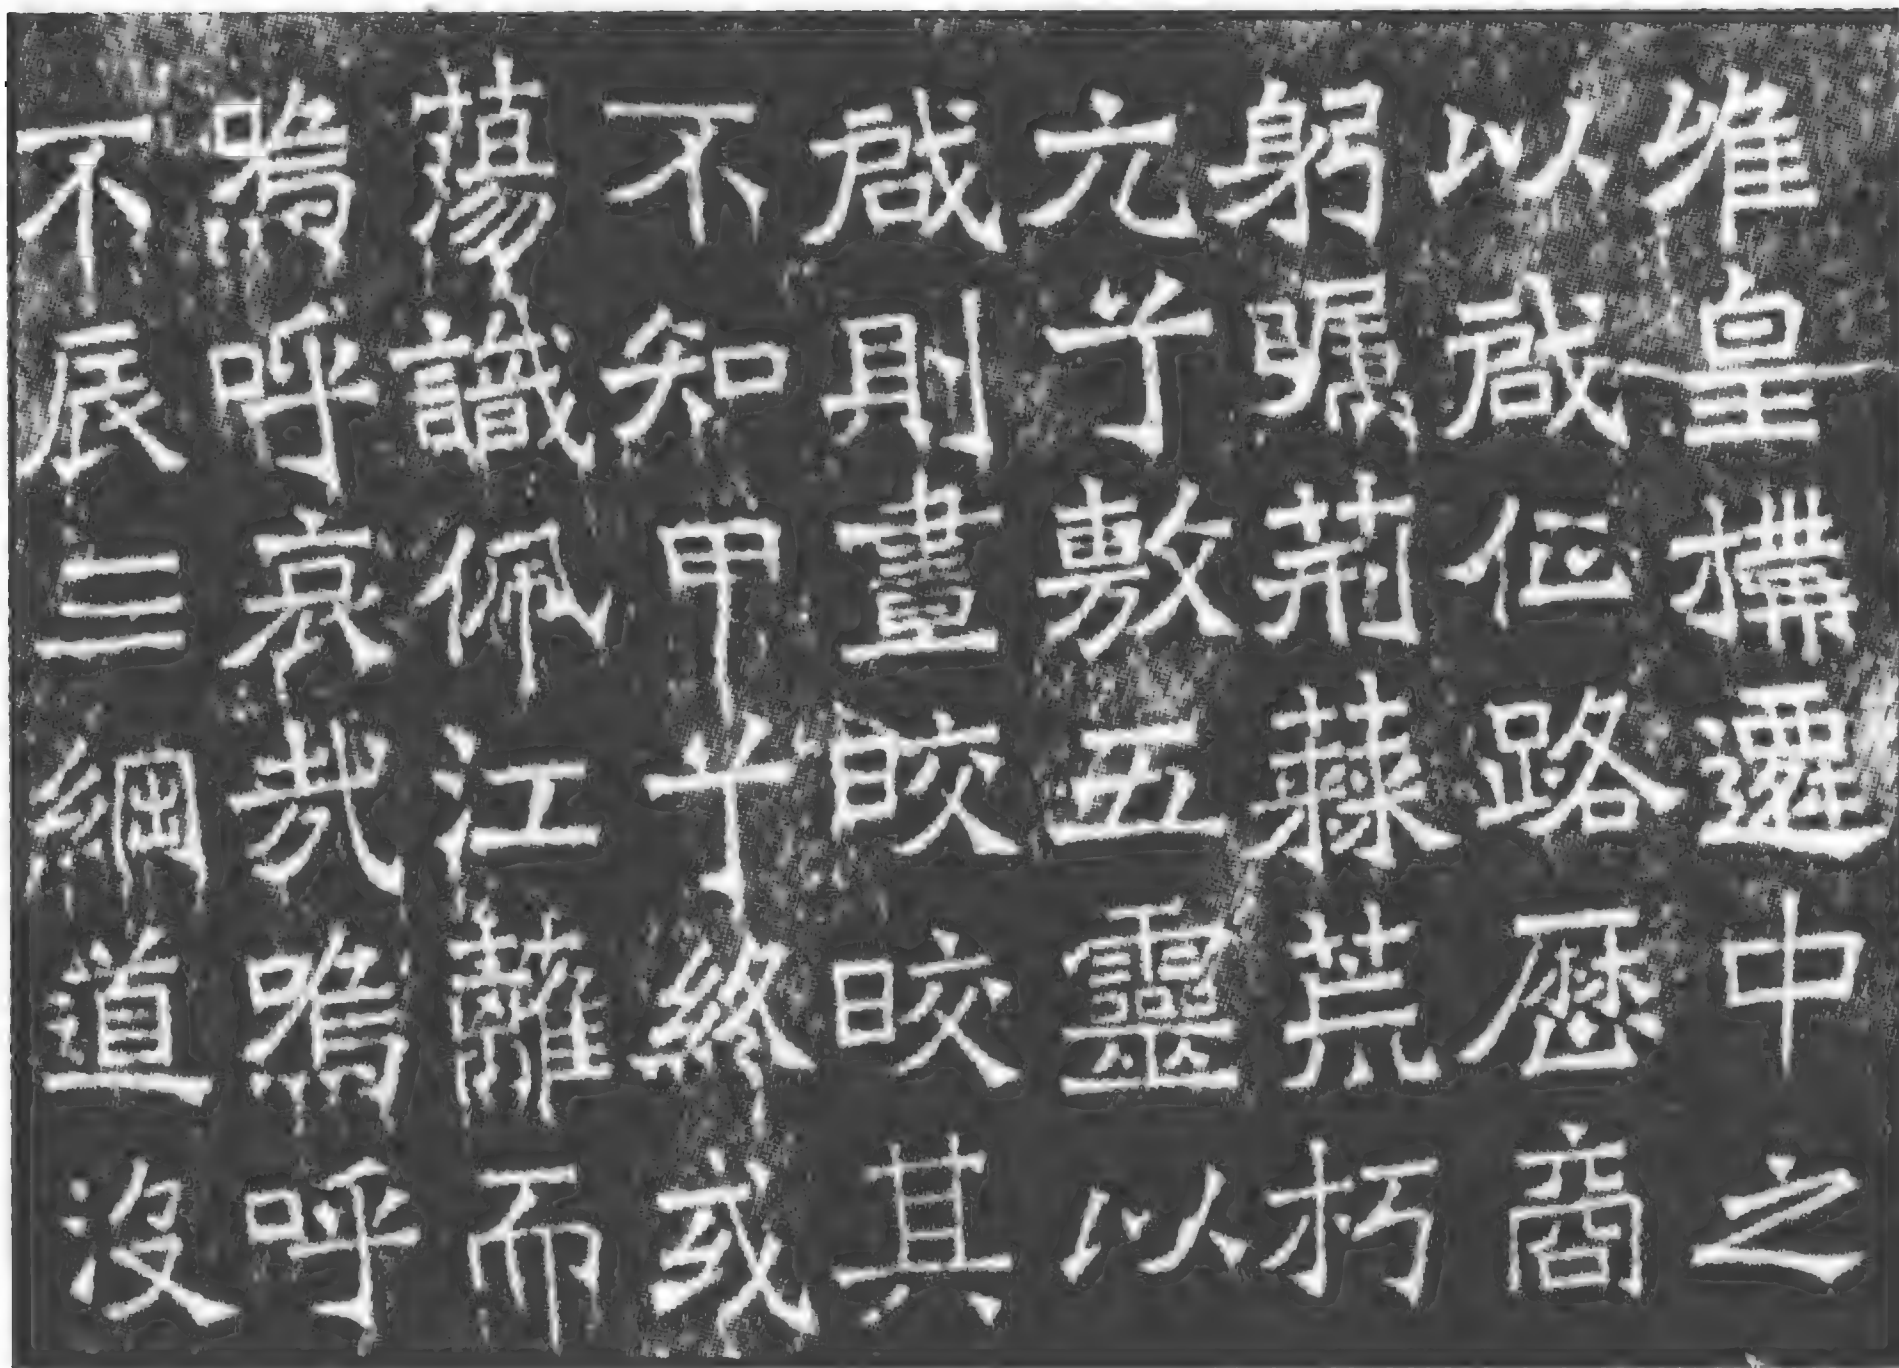 惟皇搆邇中之
以啟仁路歷商
躬矚荊蕀荒朽
亢兮敷五靈以
啟則畫晈晈其
不知甲兮終或
蕩識佩江蘺而
嗚呼哀哉嗚呼
不辰三綱道沒